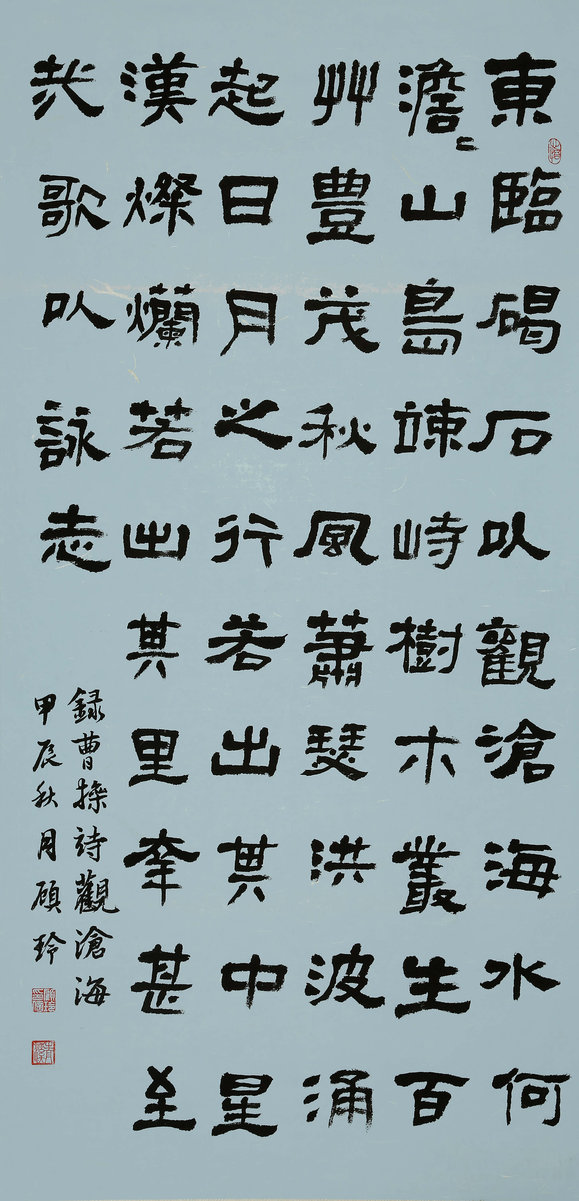 東臨碣石以觀滄海水何
澹〻山島竦峙樹木叢生百
艸豊茂秋風蕭瑟洪波涌
起日月之行若出其中星
漢燦爛若出其里幸甚至
哉歌以詠志
録曹操詩觀滄海
甲辰秋月碩玲